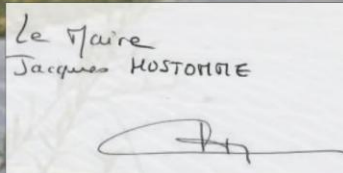 Le Maire
Jacques HOSTOMME